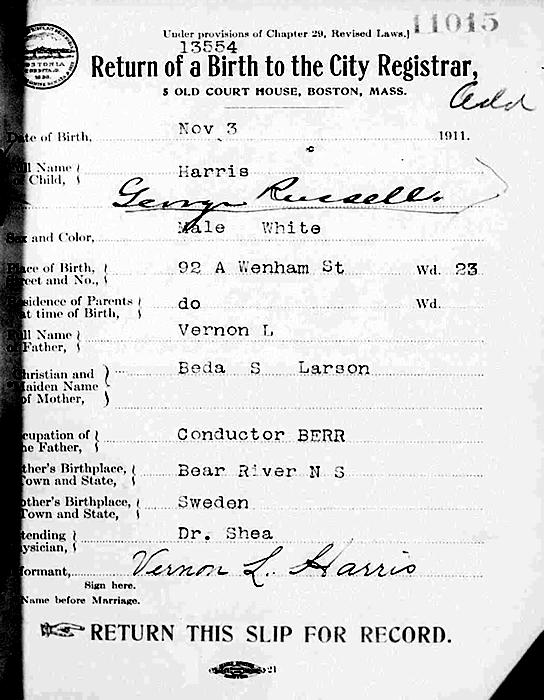 Under provisions of Chapter 29, Revised Laws.] 11015
13554
Return of a Birth to the City Registrar,
5 OLD COURT HOUSE, BOSTON, MASS.
Add
Date of Birth, Nov 3 1911.
Full Name of Child, Harris
George Russell.
Sex and Color, Male White
Place of Birth, Street and No., 92 A Wenham St Wd. 23
Residence of Parents at time of Birth, do Wd.
Full Name of Father, Vernon L
Christian and Maiden Name of Mother, Beda S Larson
Occupation of the Father, Conductor BERR
Father's Birthplace, Town and State, Bear River N S
Mother's Birthplace, Town and State, Sweden
Attending Physician, Dr. Shea
Informant, Vernon L. Harris
Sign here.
Name before Marriage.
RETURN THIS SLIP FOR RECORD.
21